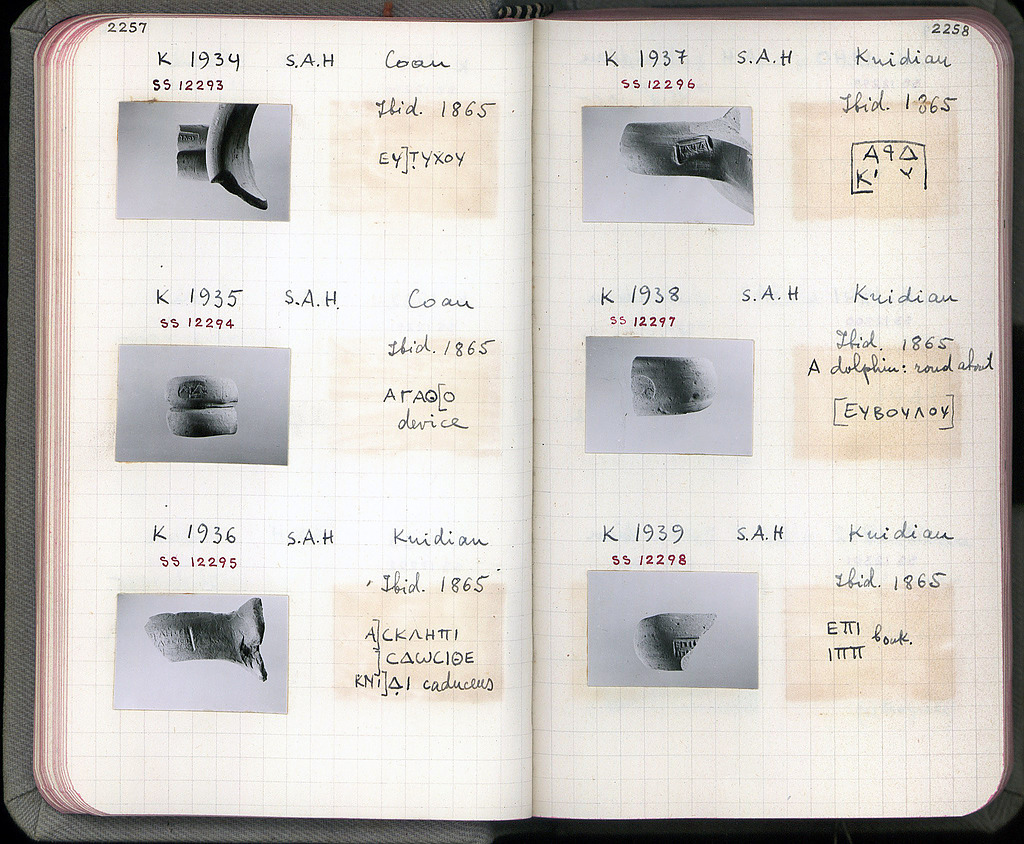 2257
K 1934 S.A.H Coan
SS 12293
Ibid. 1865
ΕΥ]ΤΥΧΟΥ
K 1935 S.A.H. Coan
SS 12294
Ibid. 1865
ΑΓΑΘ[Ο
device
K 1936 S.A.H Knidian
SS 12295
Ibid. 1865
Α]CΚΛΗΠΙ
]CΔωCΙΘΕ
ΚΝΙ]Δ̣Ι caduceus
2258
K 1937 S.A.H Knidian
SS 12296
Ibid. 1865
K 1938 S.A.H Knidian
SS 12297
Ibid. 1865
A dolphin: round about
[ΕΥΒΟΥΛΟΥ]
K 1939 S.A.H Knidian
SS 12298
Ibid. 1865
ΕΠΙ
ΙΠΠ